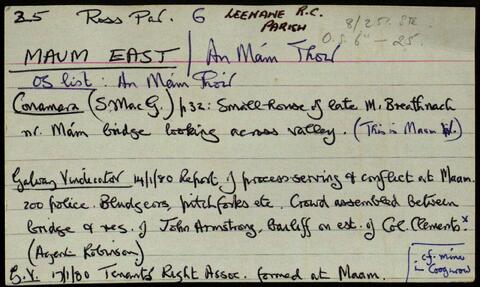 35 Ross Par. G LEENANE R.C. PARISH
8/25". STR
O.S 6" - 25.
MAUM EAST / An Mám Thoir
OS list: An Mám Thoir
Conamara (S. Mac G.) p32: Small-house of late M. Breathnach
nr. Mám bridge looking across valley. (This is Maam
Galway Vindicator 14/1/80 Report of process-serving & conflict at Maam.
200 police. Bludgeons, pitchforks etc. Crowd assembled between
bridge & res. of John Armstrong, bailiff on est. of Col. Clements. x
(Agent Robinson)
G.V. 17/1/80 Tenants Right Assoc. formed at Maam.
cf. mines
in Coogrow